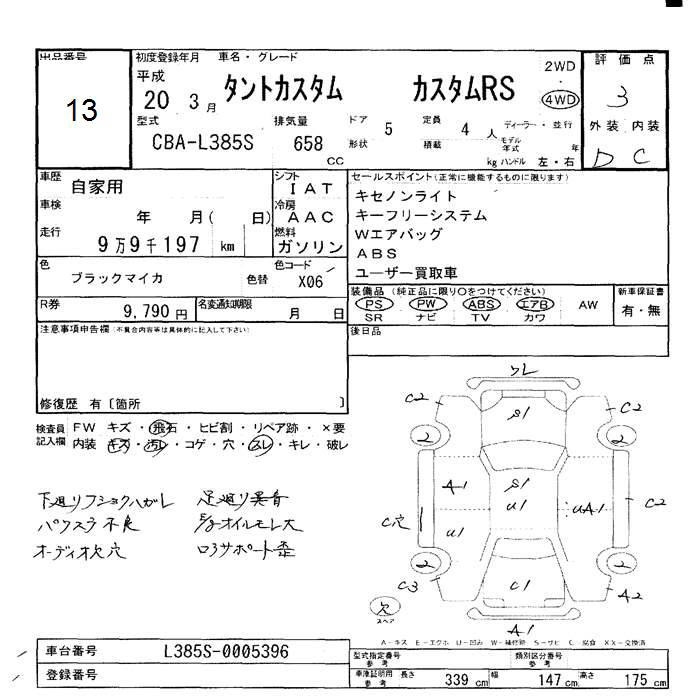 出品番号 初度登録年月 車名・グレード 2WD ・ 4WD 評価点
13 平成 20 3月 タントカスタム カスタムRS 3
型式 CBA-L385S 排気量 658 cc ドア形状 5 定員積載 4 人 kg ディーラー・並行 モデル年式 年 ハンドル 左・右 外装 内装
D C
車歴 自家用 シフト IAT セールスポイント(正常に機能するものに限ります)
車検 年 月( 日) 冷房 AAC キセノンライト
キーフリーシステム
走行 9万9千197 km 燃料 ガソリン Wエアバッグ
ABS
色 ブラックマイカ 色替 色コード X06 ユーザー買取車
装備品 (純正品に限り○をつけてください) 新車保証書
R券 9,790円 名変通知期限 月 日 PS PW ABS エアB AW 有・無
SR ナビ TV カワ
注意事項申告欄(不具合内容等は具体的に記入して下さい) 後日品
修復歴 有〔箇所 〕
検査員 FW キズ・飛石・ヒビ割・リペア跡・×要
記入欄 内装 キズ・汚レ・コゲ・穴・スレ・キレ・破レ
下廻りフショクハガレ 足廻り異音
パワステ不良 オイルモレ大
オーディオ欠穴 サポート歪
ワレ
C2 S1 C2
2 2
A1 S1
U1 UA1 C2
C穴 U1
2 2
C3 C1 A2
欠 スペア
A1
A-キズ E-エクボ U-凹み W-補修跡 S-サビ C 腐食 XX-交換済
車台番号 L385S-0005396 型式指定番号 参考 類別区分番号 参考
登録番号 車庫証明用 参考 長さ 339 cm 幅 147 cm 高さ 175 cm